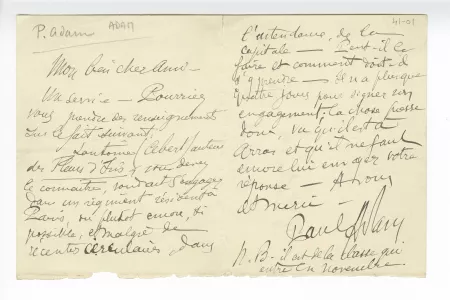 P. Adam
ADAM
Mon bien cher ami -
Un service - Pourriez
vous prendre des renseignements
sur le fait suivant.
des Fleurs d'
le connaitre, voudrait s'engager
dans un régiment résidant à
Paris, ou plutot encore, si
possible, et malgré de
récentes circulaires dans
41-01
l'intendance de la
capitale - Peut-il le
faire et comment doit-il
s'y prendre - Il n'a plus que
quatre jours pour signer un
engagement; la chose presse
donc, vu qu'il est à
Arras et qu'il me faut
encore lui envoyer votre
réponse - A vous
et merci -
Paul Adam
N.B - il est de la classe qui
entre en novembre